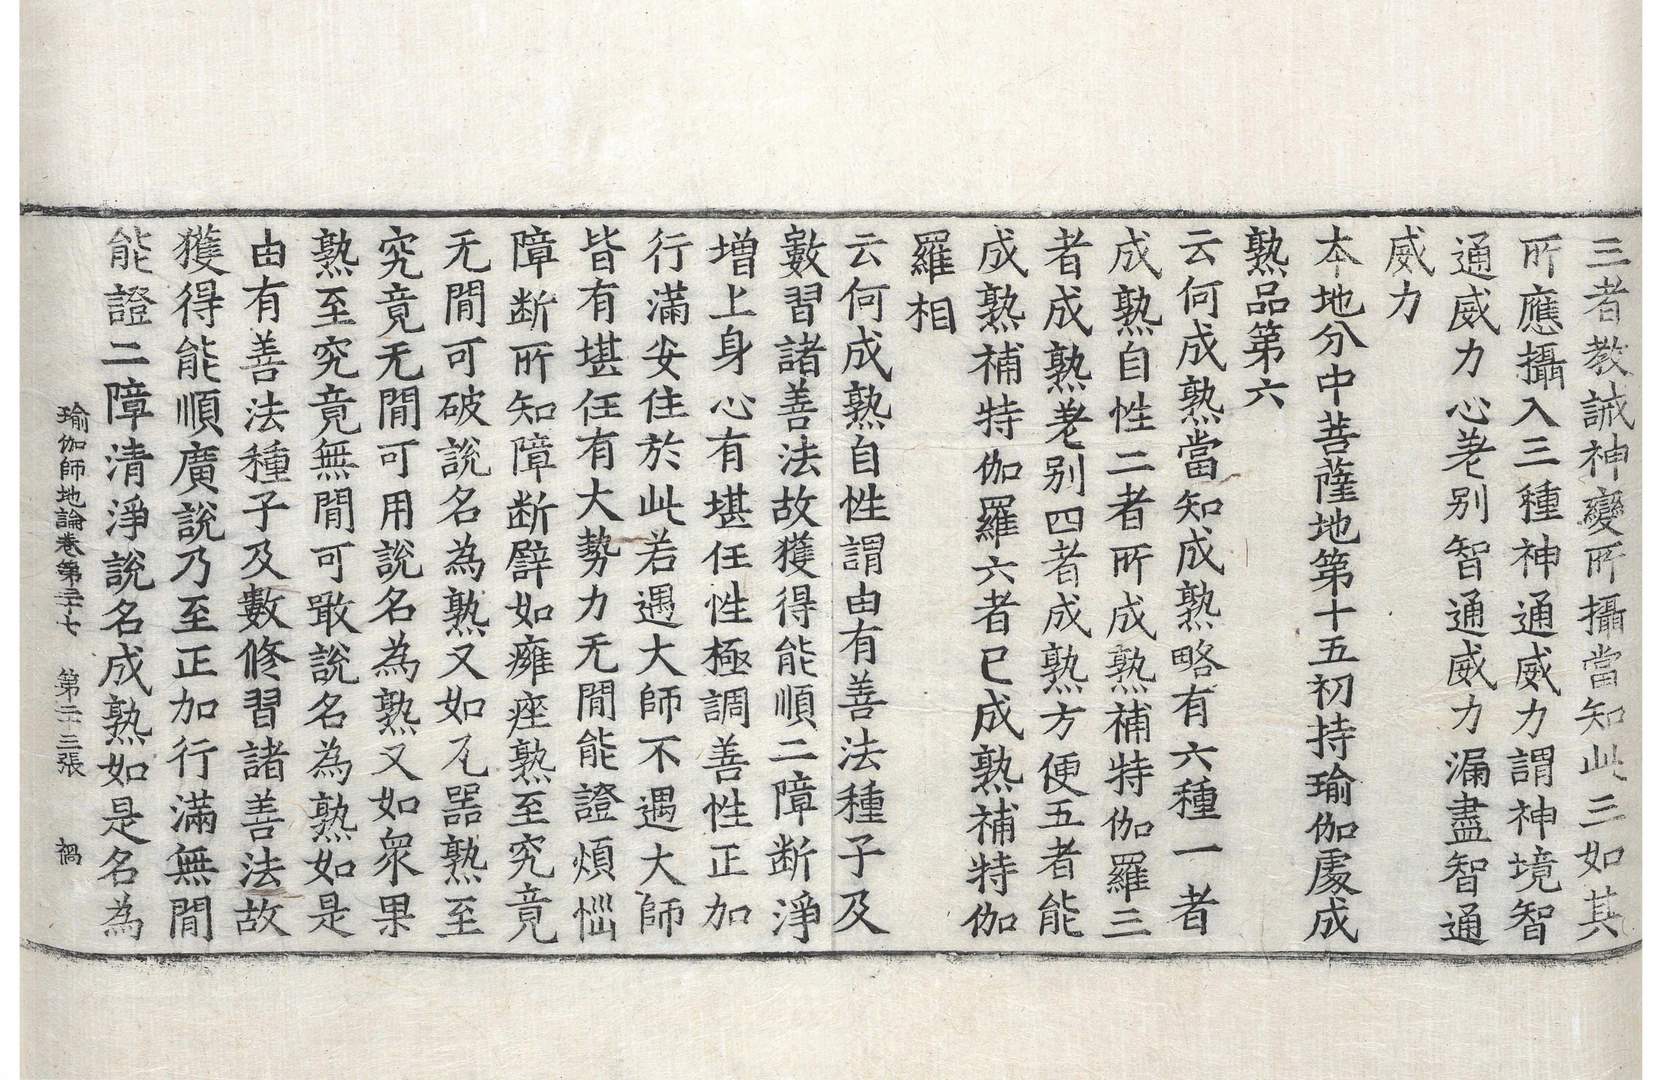 三者教誡神變所攝當知此三如其
所應攝入三種神通威力謂神境智
通威力心差别智通威力漏盡智通
威力
本地分中菩薩地第十五初持瑜伽處成
熟品第六
云何成熟當知成熟略有六種一者
成熟自性二者所成熟補特伽羅三
者成熟差别四者成熟方便五者能
成熟補特伽羅六者已成熟補特伽
羅相
云何成熟自性謂由有善法種子及
數習諸善法故獲得能順二障断淨
增上身心有堪任性極調善性正加
行滿安住於此若遇大師不遇大師
皆有堪任有大勢力无閒能證煩惱
障断所知障断譬如癰痤熟至究竟
无閒可破說名為熟又如瓦器熟至
究竟无閒可用說名為熟又如衆果
熟至究竟無閒可噉說名為熟如是
由有善法種子及數修習諸善法故
獲得能順廣說乃至正加行滿無閒
能證二障清淨說名成熟如是名為
瑜伽師地論卷第三十七　第二十三張　禍